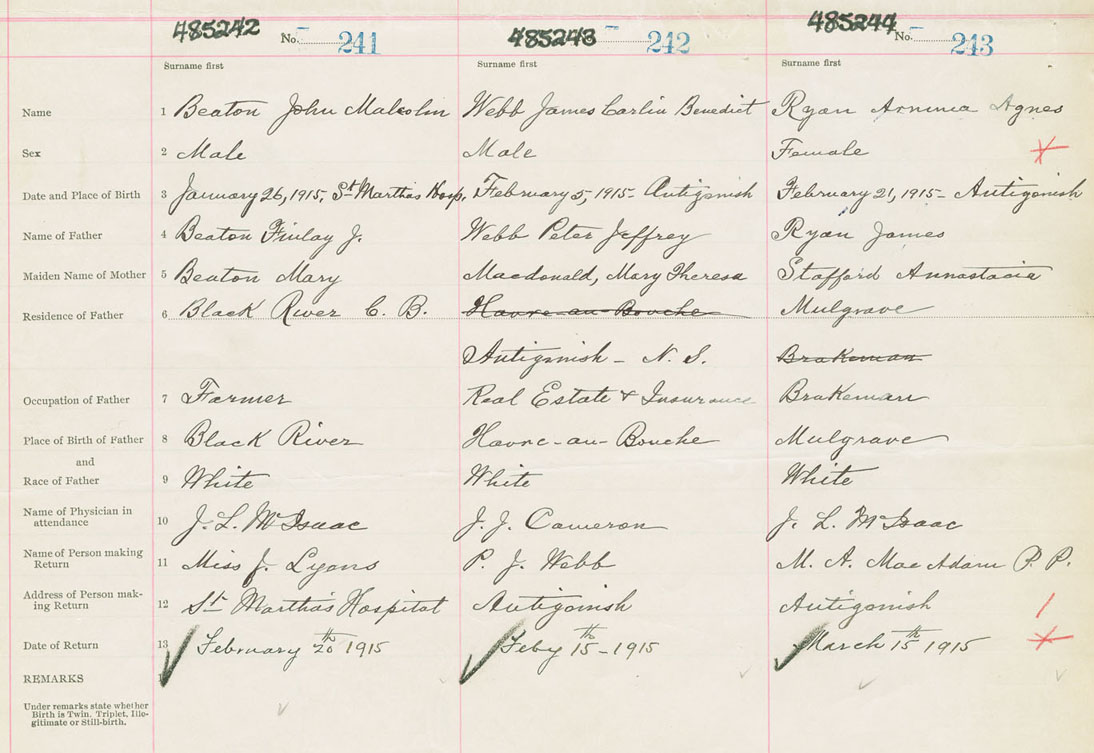 485242 No. 241 485243 242 485244 No. 243
Surname first Surname first Surname first
Name 1 Beaton John Malcolm Webb James Carlin Benedict Ryan Agnes
Sex 2 Male Male Female
Date and Place of Birth 3 January 26, 1915, St Martha's Hosp. February 5, 1915 - Antigonish February 21, 1915 - Antigonish
Name of Father 4 Beaton Finlay J. Webb Peter Jeffrey Ryan James
Maiden Name of Mother 5 Beaton Mary Macdonald, Mary Theresa Stafford Annastacia
Residence of Father 6 Black River C. B. Havre-au-Bouche Mulgrave
Antigonish - N. S. Brakeman
Occupation of Father 7 Farmer Real Estate & Insurance Brakeman
Place of Birth of Father 8 Black River Havre-au-Bouche Mulgrave
and
Race of Father 9 White White White
Name of Physician in
attendance 10 J. L. McIsaac J. J. Cameron J. L. McIsaac
Name of Person making
Return 11 Miss J. Lyons P. J. Webb M. A. MacAdam P. P.
Address of Person mak-
ing Return 12 St. Martha's Hospital Antigonish Antigonish
Date of Return 13 February 20th 1915 Feby 15th - 1915 March 15th 1915
REMARKS
Under remarks state whether
Birth is Twin, Triplet, Ille-
gitimate or Still-birth.